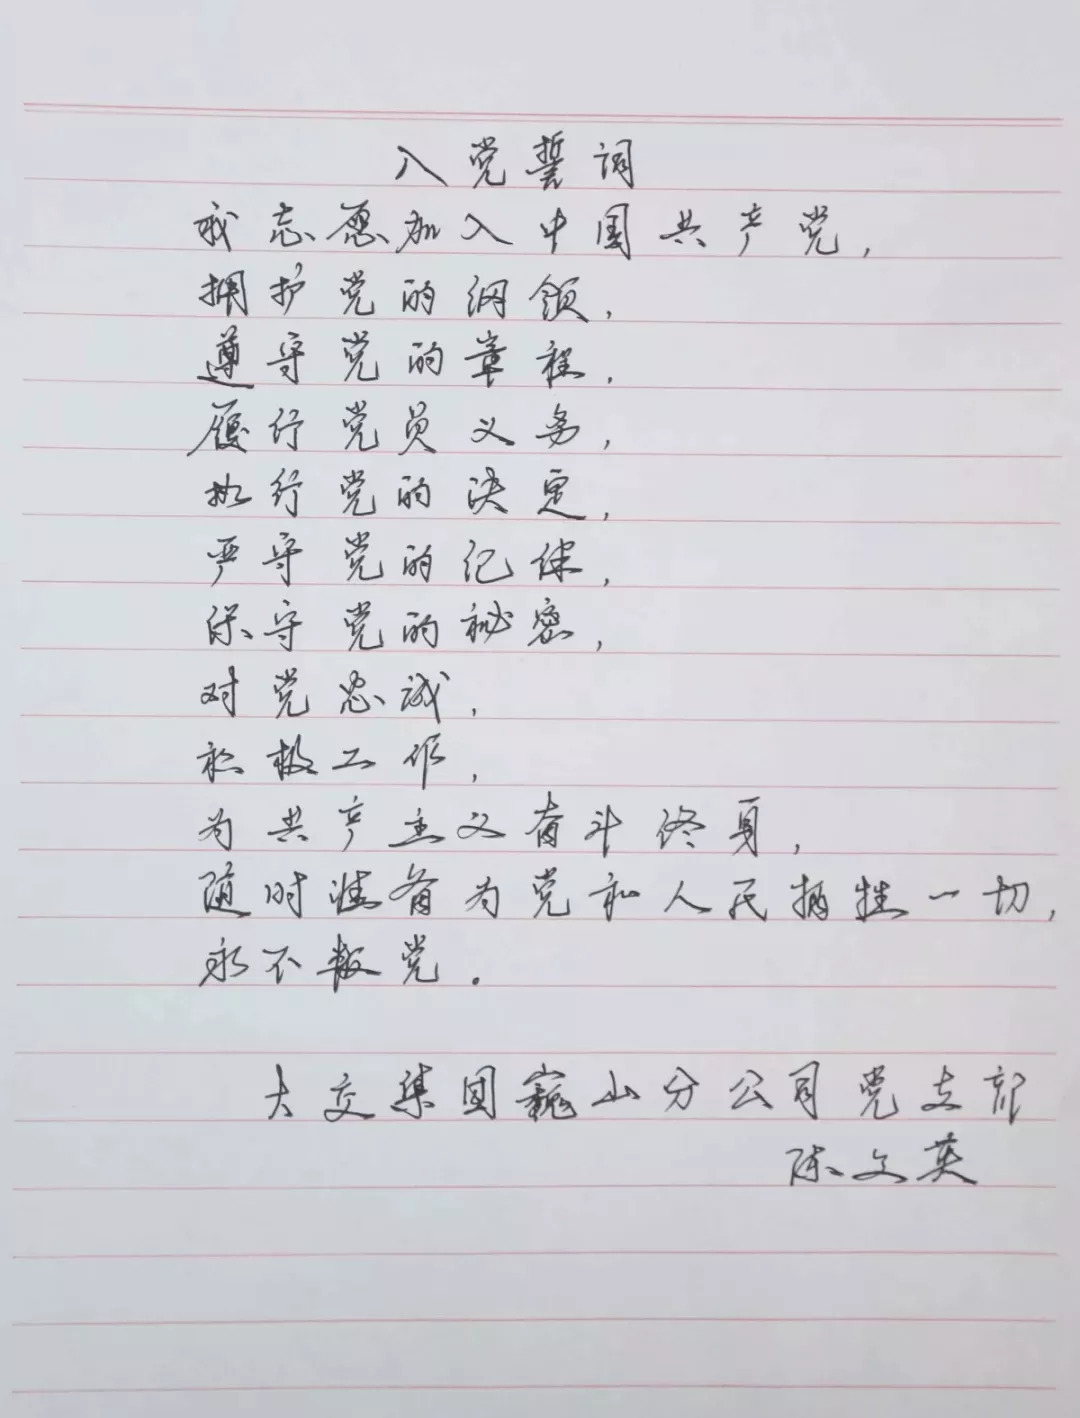 入党誓词
我志愿加入中国共产党，
拥护党的纲领，
遵守党的章程，
履行党员义务，
执行党的决定，
严守党的纪律，
保守党的秘密，
对党忠诚，
积极工作，
为共产主义奋斗终身，
随时准备为党和人民牺牲一切，
永不叛党。
大交集团巍山分公司党支部
陈文英